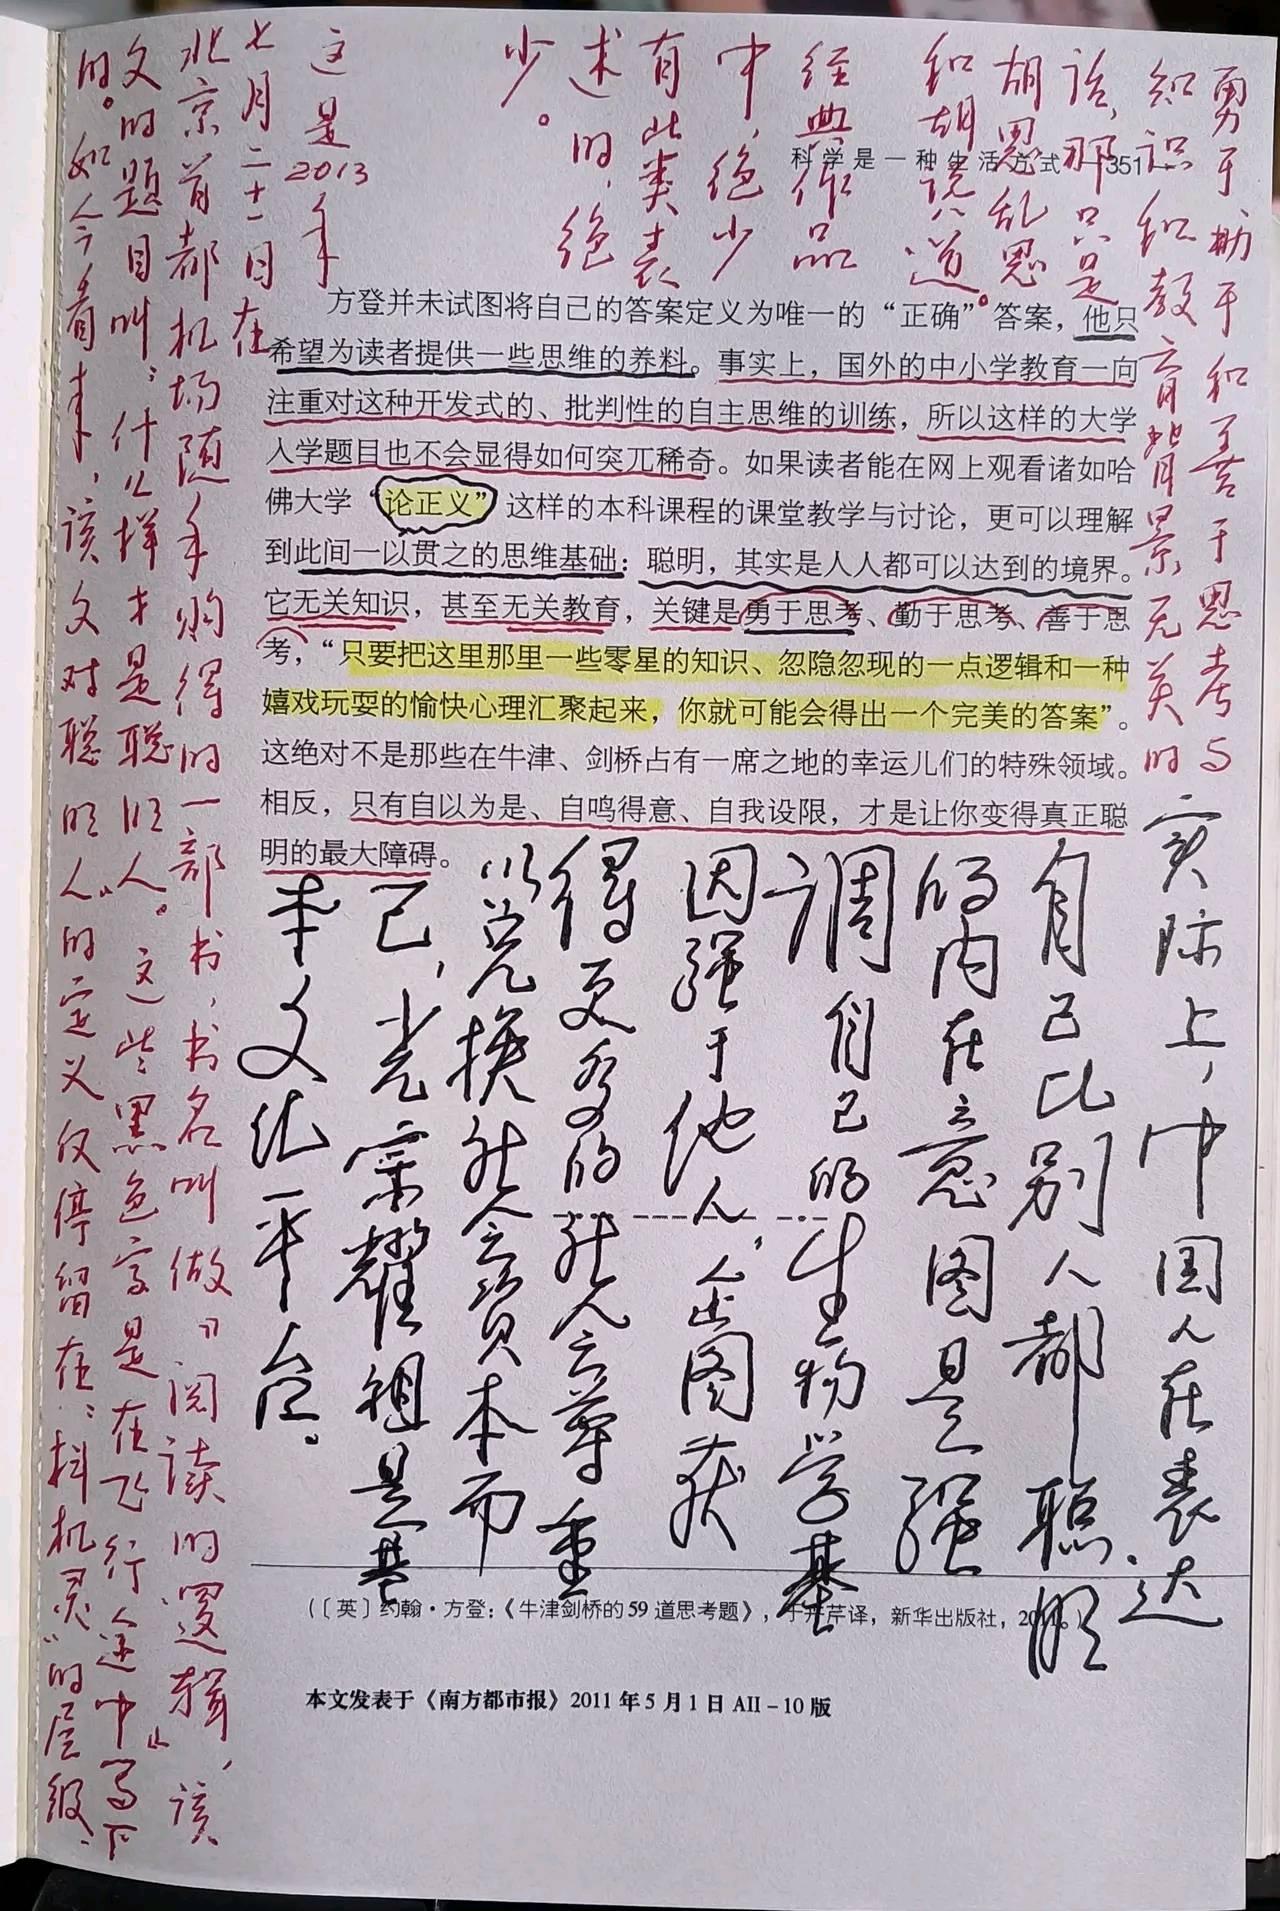 科学是一种生活方式 351
方登并未试图将自己的答案定义为唯一的“正确”答案，他只
希望为读者提供一些思维的养料。事实上，国外的中小学教育一向
注重对这种开发式的、批判性的自主思维的训练，所以这样的大学
入学题目也不会显得如何突兀稀奇。如果读者能在网上观看诸如哈
佛大学“论正义”这样的本科课程的课堂教学与讨论，更可以理解
到此间一以贯之的思维基础：聪明，其实是人人都可以达到的境界。
它无关知识，甚至无关教育，关键是勇于思考、勤于思考、善于思
考，“只要把这里那里一些零星的知识、忽隐忽现的一点逻辑和一种
嬉戏玩耍的愉快心理汇聚起来，你就可能会得出一个完美的答案”。
这绝对不是那些在牛津、剑桥占有一席之地的幸运儿们的特殊领域。
相反，只有自以为是、自鸣得意、自我设限，才是让你变得真正聪
明的最大障碍。
（〔英〕约翰·方登：《牛津剑桥的59道思考题》，于开芹译，新华出版社，2011。）
本文发表于《南方都市报》2011年5月1日AII－10版
实际上，中国人在表达
自己比别人都聪明
的内在意图是强
调自己的生物学基
因强于他人，企图获
得更多的社会尊重
以兑换社会资本而
已，光宗耀祖是其
本文化平台。
勇于、勤于和善于思考与
知识和教育背景无关的
话，那只是
胡思乱想
和胡说八道。
经典作品
中，绝少
有此类表
述的，绝
少。
这是2013年
七月二十一日在
北京首都机场随手购得的一部书，书名叫做“阅读的逻辑”，该
文的题目叫：什么样才是聪明人。这些黑色字是在飞行途中写下
的。如今看来，该文对聪明人的定义仅停留在：“抖机灵”的层级。